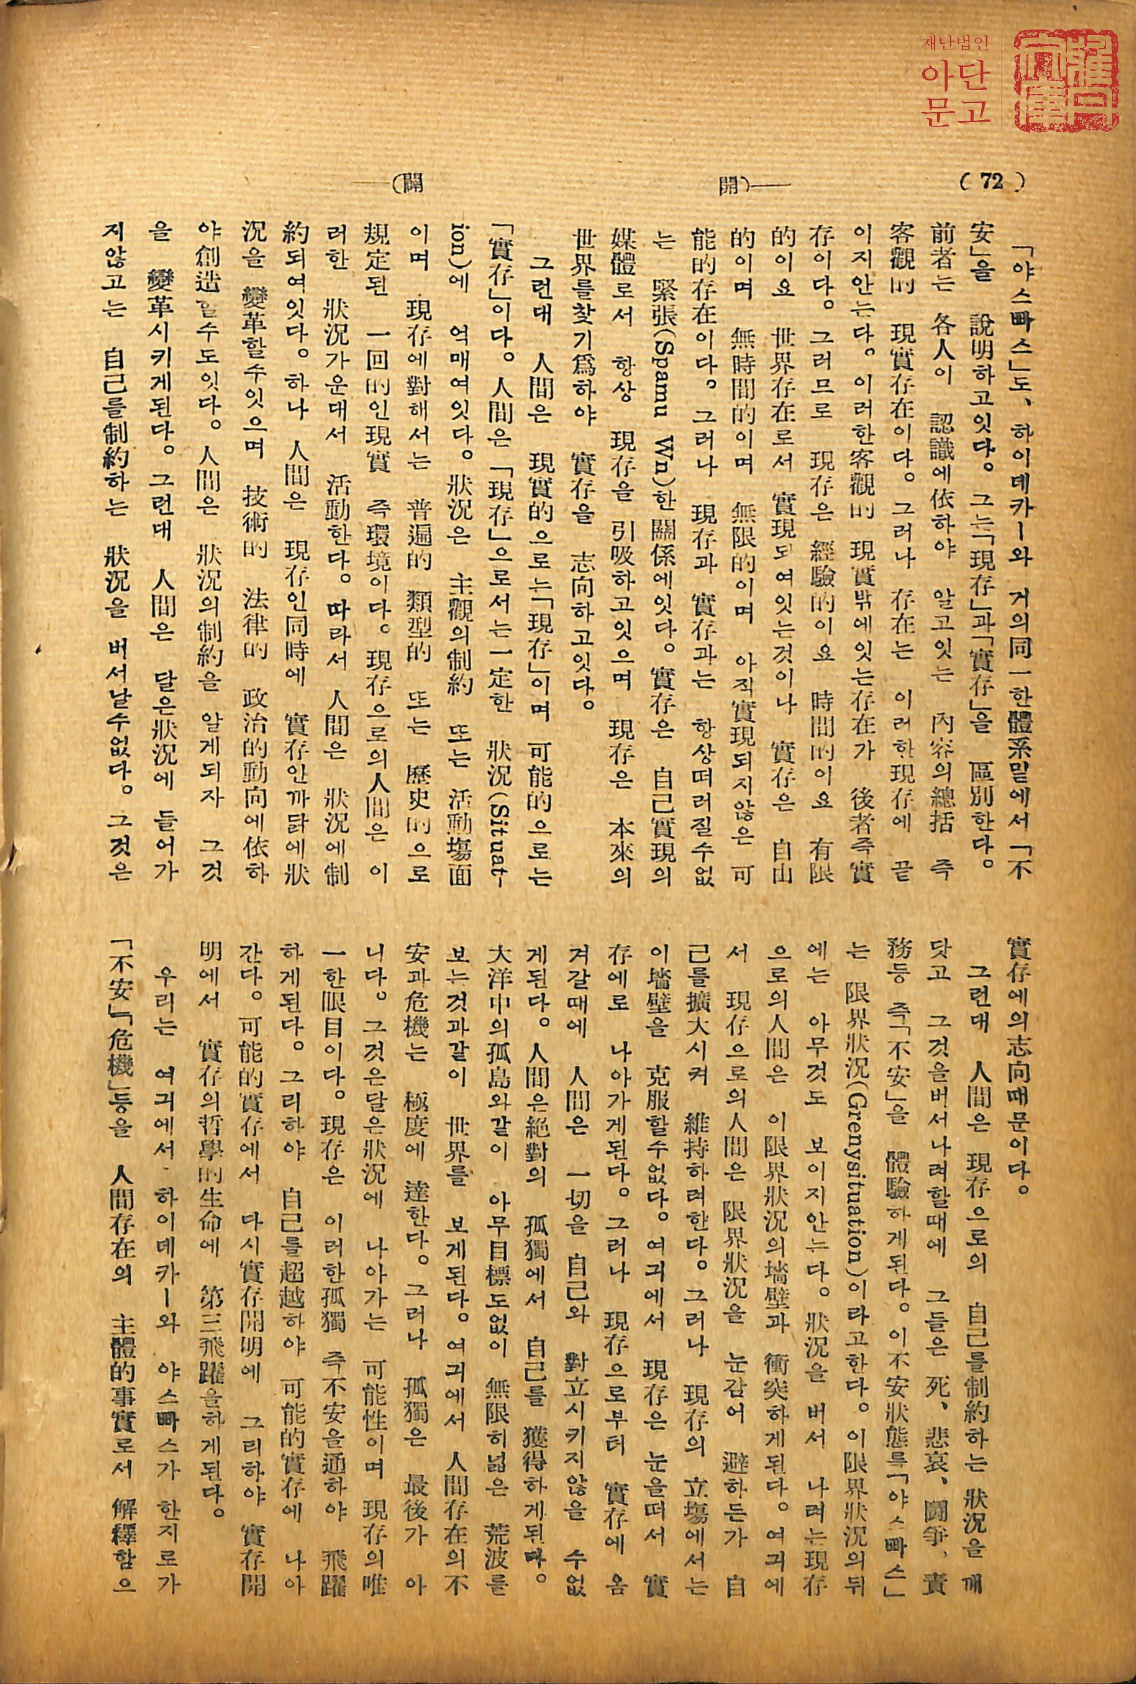 재단법인
아단
문고
( 72 )
開)——
——(開
「야스빠스」도、하이데카ー와 거의同一한體系밑에서「不
安」을 說明하고잇다。그는「現存」과「實存」을 區別한다。
前者는 各人이 認識에依하야 알고잇는 內容의總括 즉
客觀的 現實存在이다。그러나 存在는 이러한現存에 끝
이지안는다。이러한客觀的 現實밖에잇는存在가 後者즉實
存이다。그러므로 現存은 經驗的이요 時間的이요 有限
的이요 世界存在로서 實現되여잇는것이나 實存은 自由
的이며 無時間的이며 無限的이며 아직實現되지않은 可
能的存在이다。그러나 現存과 實存과는 항상떠러질수없
는 緊張(Spamu Wn)한關係에잇다。實存은 自己實現의
媒體로서 항상 現存을 引吸하고잇으며 現存은 本來의
世界를찾기爲하야 實存을 志向하고잇다。
그런대 人間은 現實的으로는「現存」이며 可能的으로는
「實存」이다。人間은「現存」으로서는一定한 狀況(Situat-
ion)에 억매여잇다。狀況은 主觀의制約 또는 活動場面
이며 現存에對해서는 普遍的 類型的 또는 歷史的으로
規定된 一回的인現實 즉環境이다。現存으로의人間은 이
러한 狀況가운대서 活動한다。따라서 人間은 狀況에制
約되여잇다。하나 人間은 現存인同時에 實存인까닭에狀
況을 變革할수잇으며 技術的 法律的 政治的動向에依하
야創造할수도잇다。人間은 狀況의制約을 알게되자 그것
을 變革시키게된다。그런대 人間은 달은狀況에 들어가
지않고는 自己를制約하는 狀況을 버서날수없다。그것은
實存에의志向때문이다。
그런대 人間은 現存으로의 自己를制約하는 狀況을 깨
닷고 그것을버서나려할때에 그들은 死、悲哀、鬪爭、責
務등 즉「不安」을 體驗하게된다。이不安狀態를「야스빠스」
는 限界狀況(Grenysituation)이라고한다。이限界狀況의뒤
에는 아무것도 보이지안는다。狀況을 버서 나려는現存
으로의人間은 이限界狀況의墻壁과 衝突하게된다。여긔에
서 現存으로의人間은 限界狀況을 눈감어 避하든가 自
己를擴大시켜 維持하려한다。그러나 現存의 立場에서는
이墻壁을 克服할수없다。여긔에서 現存은 눈을떠서 實
存에로 나아가게된다。그러나 現存으로부터 實存에 옴
겨갈때에 人間은 一切을 自己와 對立시키지않을 수없
게된다。人間은絶對의 孤獨에서 自己를 獲得하게된다。
大洋中의孤島와같이 아무目標도없이 無限히넓은 荒波를
보는것과같이 世界를 보게된다。여긔에서 人間存在의不
安과危機는 極度에 達한다。그러나 孤獨은 最後가 아
니다。그것은달은狀況에 나아가는 可能性이며 現存의唯
一한眼目이다。現存은 이러한孤獨 즉不安을通하야 飛躍
하게된다。그리하야 自己를超越하야 可能的實存에 나아
간다。可能的實存에서 다시實存開明에 그리하야 實存開
明에서 實存의哲學的生命에 第三飛躍을하게된다。
우리는 여긔에서 하이데카ー와 야스빠스가 한지로가
「不安」「危機」등을 人間存在의 主體的事實로서 解釋함으